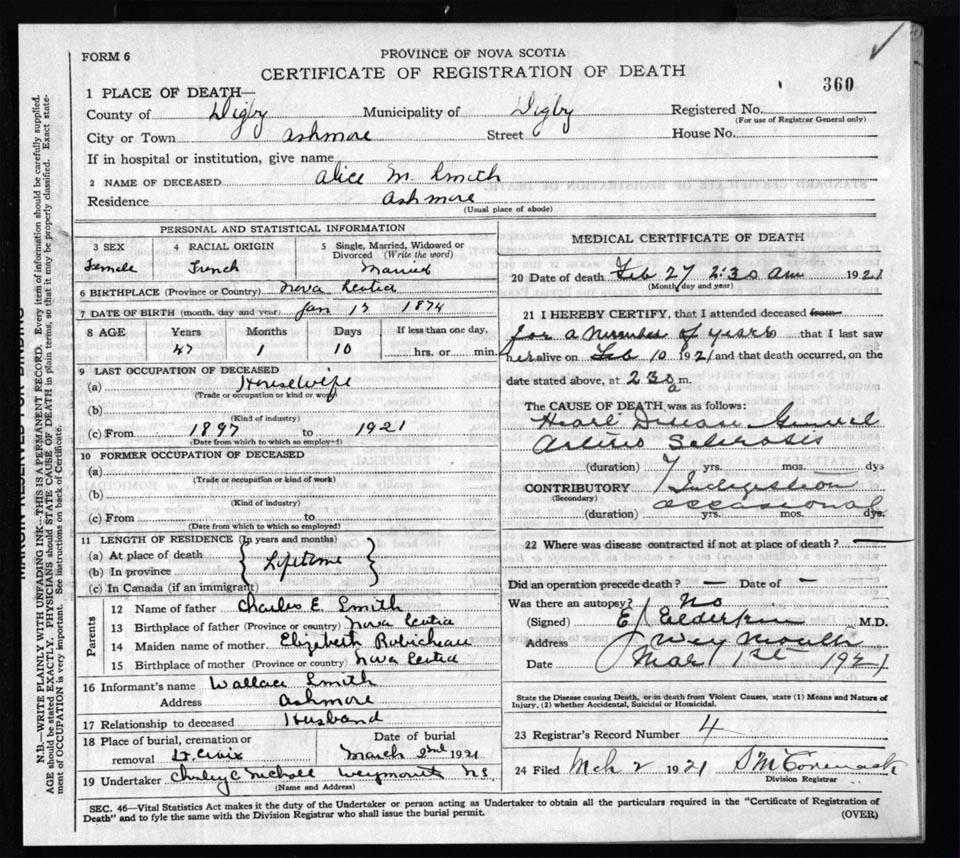 FORM 6
PROVINCE OF NOVA SCOTIA
CERTIFICATE OF REGISTRATION OF DEATH
360
1 PLACE OF DEATH—
County of Digby Municipality of Digby Registered No.
(For use of Registrar General only)
City or Town Ashmore Street House No.
If in hospital or institution, give name
2 NAME OF DECEASED Alice M. Smith
Residence Ashmore
(Usual place of abode)
PERSONAL AND STATISTICAL INFORMATION
3 SEX 4 RACIAL ORIGIN 5 Single, Married, Widowed or Divorced (Write the word)
Female French Married
6 BIRTHPLACE (Province or Country) Nova Scotia
7 DATE OF BIRTH (month, day and year) Jan 17 1874
8 AGE Years Months Days If less than one day,
47 1 10 hrs. or min.
9 LAST OCCUPATION OF DECEASED
(a) Housewife
(Trade or occupation or kind or work)
(b)
(Kind of industry)
(c) From 1897 to 1921
(Date from which to which so employed)
10 FORMER OCCUPATION OF DECEASED
(a)
(Trade or occupation or kind of work)
(b)
(Kind of industry)
(c) From to
(Date from which to which so employed)
11 LENGTH OF RESIDENCE (In years and months)
(a) At place of death
(b) In province Lifetime
(c) In Canada (if an immigrant)
Parents
12 Name of father Charles E. Smith
13 Birthplace of father (Province or country) Nova Scotia
14 Maiden name of mother Elizabeth Robicheau
15 Birthplace of mother (Province or country) Nova Scotia
16 Informant's name Wallace Smith
Address Ashmore
17 Relationship to deceased Husband
18 Place of burial, cremation or removal St. Croix Date of burial March 2nd 1921
19 Undertaker Weymouth N.S.
(Name and Address)
MEDICAL CERTIFICATE OF DEATH
20 Date of death Feb 27 2:30 am 1921
(Month, day and year)
21 I HEREBY CERTIFY, that I attended deceased from
for a number of years that I last saw
her alive on Feb 10 1921 and that death occurred, on the
date stated above, at 2 30 a m.
The CAUSE OF DEATH was as follows:
Heart Disease General
Arterio Sclerosis
(duration) 7 yrs. mos. dys
CONTRIBUTORY Indigestion
(Secondary) occasional
(duration) yrs. mos. dys.
22 Where was disease contracted if not at place of death? —
Did an operation precede death? — Date of —
Was there an autopsy? No
(Signed) E. Elderkin M.D.
Address Weymouth
Date Mar 1st 1921
State the Disease causing Death, or in death from Violent Causes, state (1) Means and Nature of
Injury, (2) whether Accidental, Suicidal or Homicidal.
23 Registrar's Record Number 4
24 Filed Mch 2 1921
Division Registrar
SEC. 46—Vital Statistics Act makes it the duty of the Undertaker or person acting as Undertaker to obtain all the particulars required in the "Certificate of Registration of
Death" and to fyle the same with the Division Registrar who shall issue the burial permit.
(OVER)
MARGIN RESERVED FOR BINDING
N.B.—WRITE PLAINLY WITH UNFADING INK—THIS IS A PERMANENT RECORD. Every item of information should be carefully supplied.
AGE should be stated EXACTLY. PHYSICIANS should STATE CAUSE OF DEATH in plain terms, so that it may be properly classified. Exact state-
ment of OCCUPATION is very important. See instructions on back of Certificate.